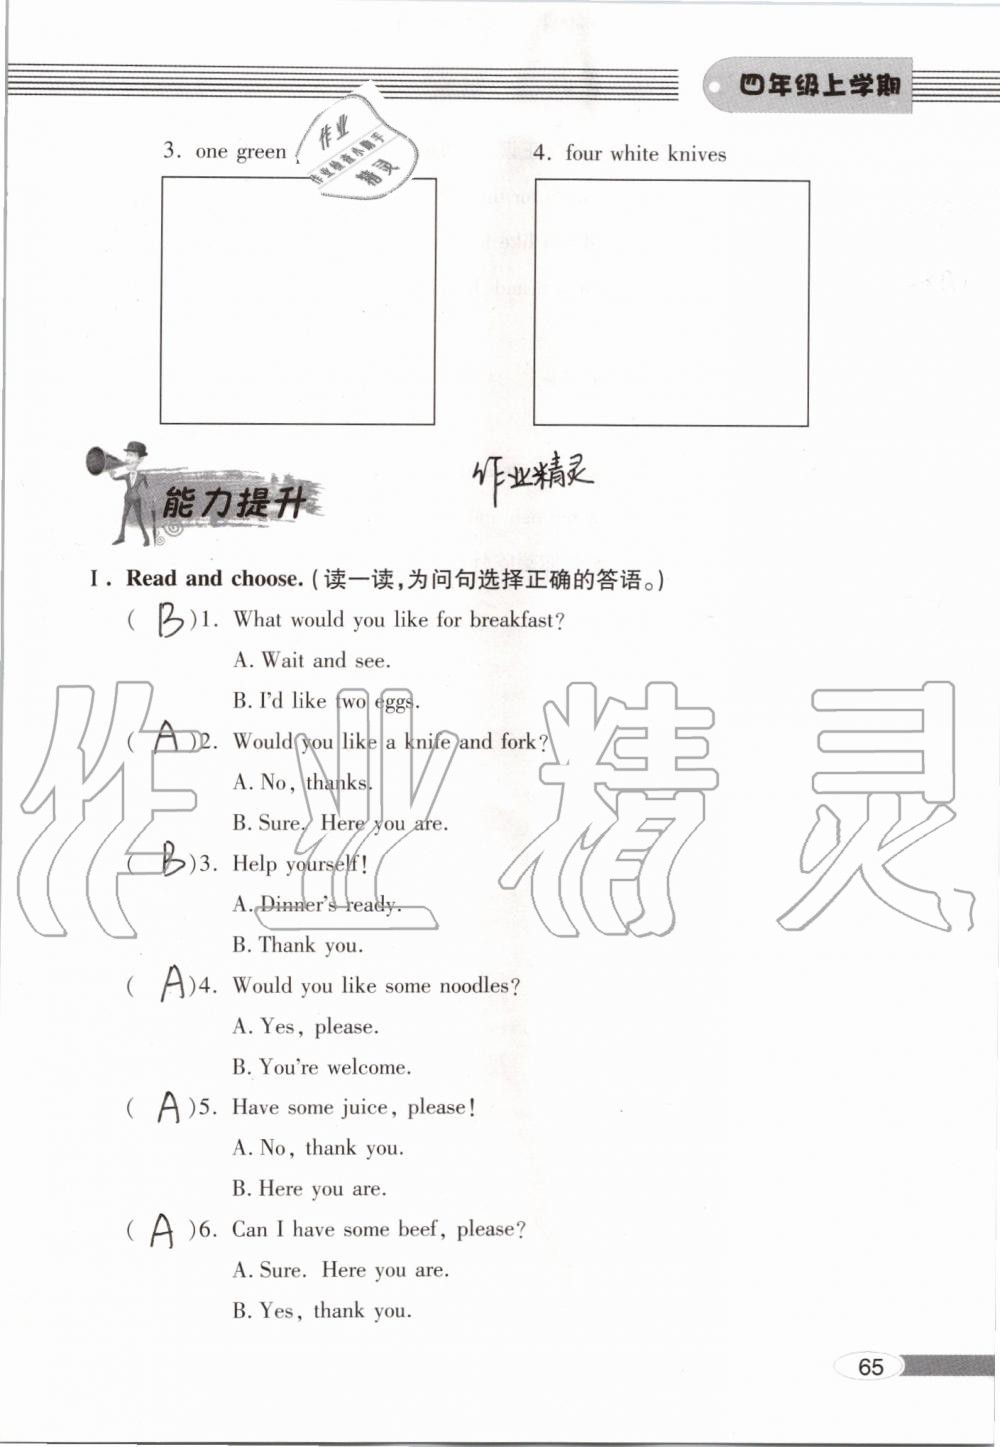 四年级上学期
作业
作业检查小助手
精灵
3. one green
4. four white knives
能力提升
作业精灵
Ⅰ. Read and choose. (读一读,为问句选择正确的答语。)
( B )1. What would you like for breakfast?
A. Wait and see.
B. I'd like two eggs.
( A )2. Would you like a knife and fork?
A. No, thanks.
B. Sure. Here you are.
( B )3. Help yourself!
A. Dinner's ready.
B. Thank you.
( A )4. Would you like some noodles?
A. Yes, please.
B. You're welcome.
( A )5. Have some juice, please!
A. No, thank you.
B. Here you are.
( A )6. Can I have some beef, please?
A. Sure. Here you are.
B. Yes, thank you.
作业精灵
65